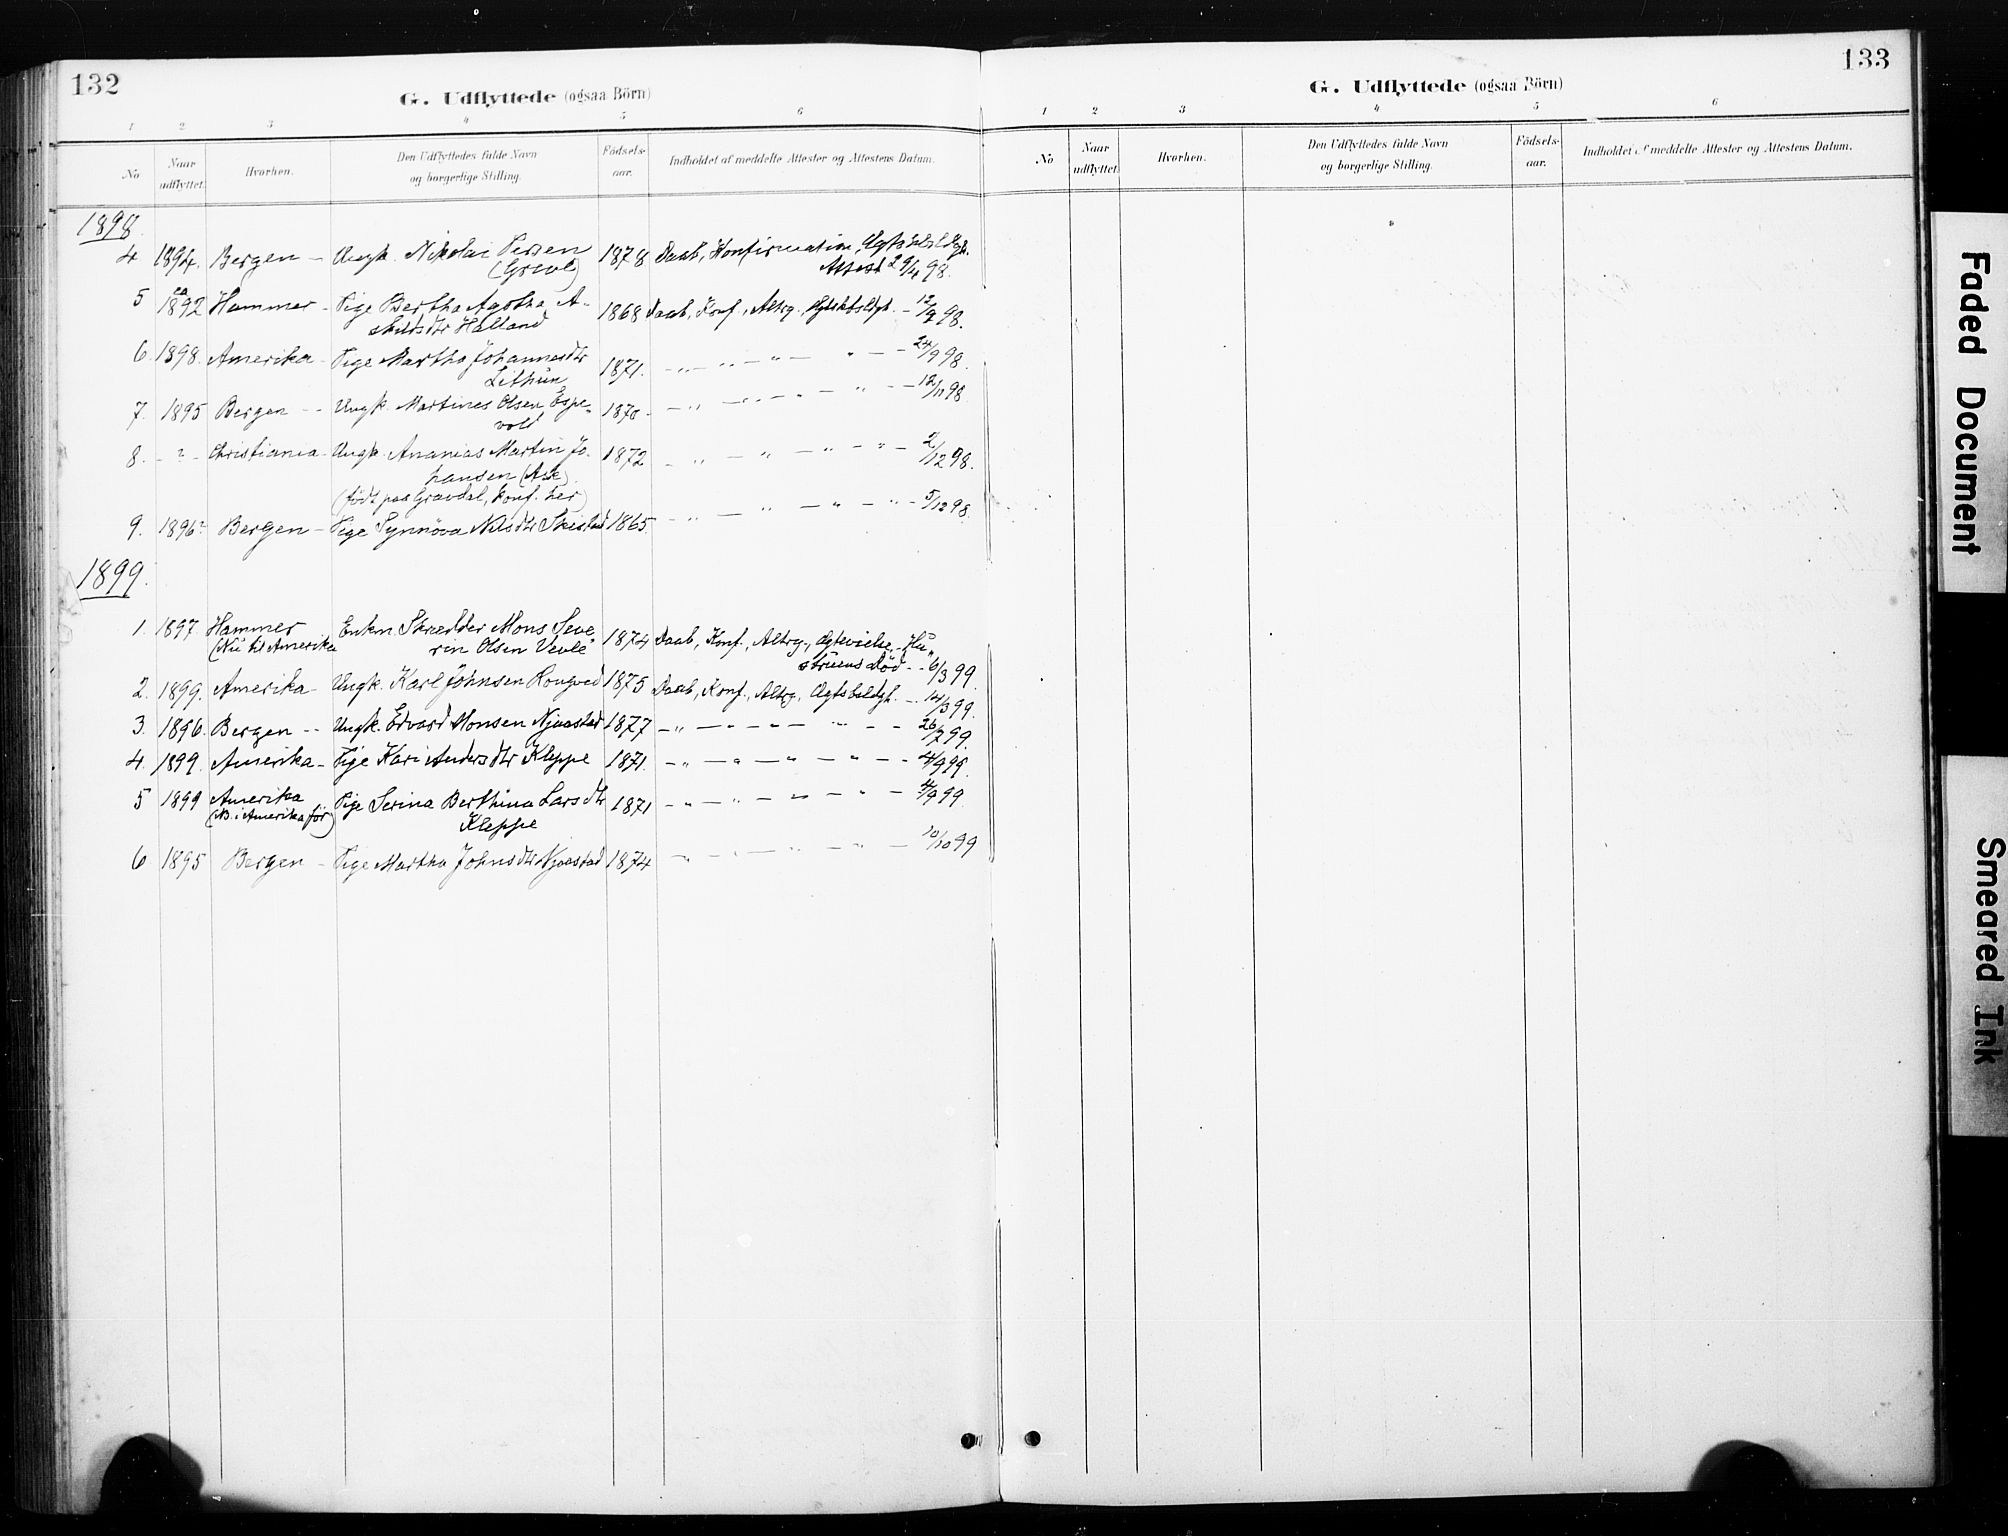 132
G. Udflyttede (ogsaa Börn)
1 2 3 4 5 6
No
Naar udflyttet.
Hvorhen.
Den Udflyttedes fulde Navn og borgerlige Stilling.
Födsels-aar.
Indholdet af meddelte Attester og Attestens Datum.
1898.
4 1894. Bergen — Ungk. Nikolai Persen 1878 Daab, Konfirmation
Attest 29/4 98.
5 1892 Hammer - Pige Bertha Agatha A- 1868 Daab, Konf., Altrg., - 12/7 98.
skildsdtr Halland
6. 1898. Amerika - Pige Martha Johannesdtr 1871. — „ — „ — „ — „ — — 24/9 98.
Lithun
7. 1895 Bergen - - Ungk. Martines Olsen Espe- 1870 - — „ — „ — „ — „ — — 12/11 98.
vold
8. - ? - Christiania - Ungk. Ananias Martin Jo- 1872 — „ — „ — „ — „ — 2/12 98.
hansen (Ase).
(födt paa Gravdal, konf. her)
9. 1896? Bergen - Pige Synnöva Nilsdtr Skistad 1865. — „ — „ — „ — „ — 5/12 98.
1899.
1. 1897 Hammer Enkm. Skrædder Mons Seve- 1874 Daab, Konf., Altrg., Ægtevielse, Hu-
(Nu til Amerika rin Olsen Vevle struens Död - - 6/3 99.
2. 1899. Amerika - Ungk. Karl Johnsen Rongved 1875 Daab, Konf., Altrg., - 14/3 99.
3. 1896. Bergen - - Ungk. Edvard Monsen Njaastad 1877 — „ — „ — „ — „ — — 26/7 99.
4. 1899. Amerika - Pige Kari Andersdtr Kleppe 1871. — „ — „ — „ — „ — 4/9 99.
5 1899 Amerika Pige Serina Berthina Larsdtr 1871 — „ — „ — „ — „ — 4/9 99
(N. i Amerika för) Kleppe
6 1895 Bergen - Pige Martha Johnsdtr Njaastad 1874 — „ — „ — „ — „ — 10/10 99
133
G. Udflyttede (ogsaa Börn)
1 2 3 4 5 6
No
Naar udflyttet.
Hvorhen.
Den Udflyttedes fulde Navn og borgerlige Stilling.
Födsels-aar.
Indholdet af meddelte Attester og Attestens Datum.
Faded Document
Smeared Ink